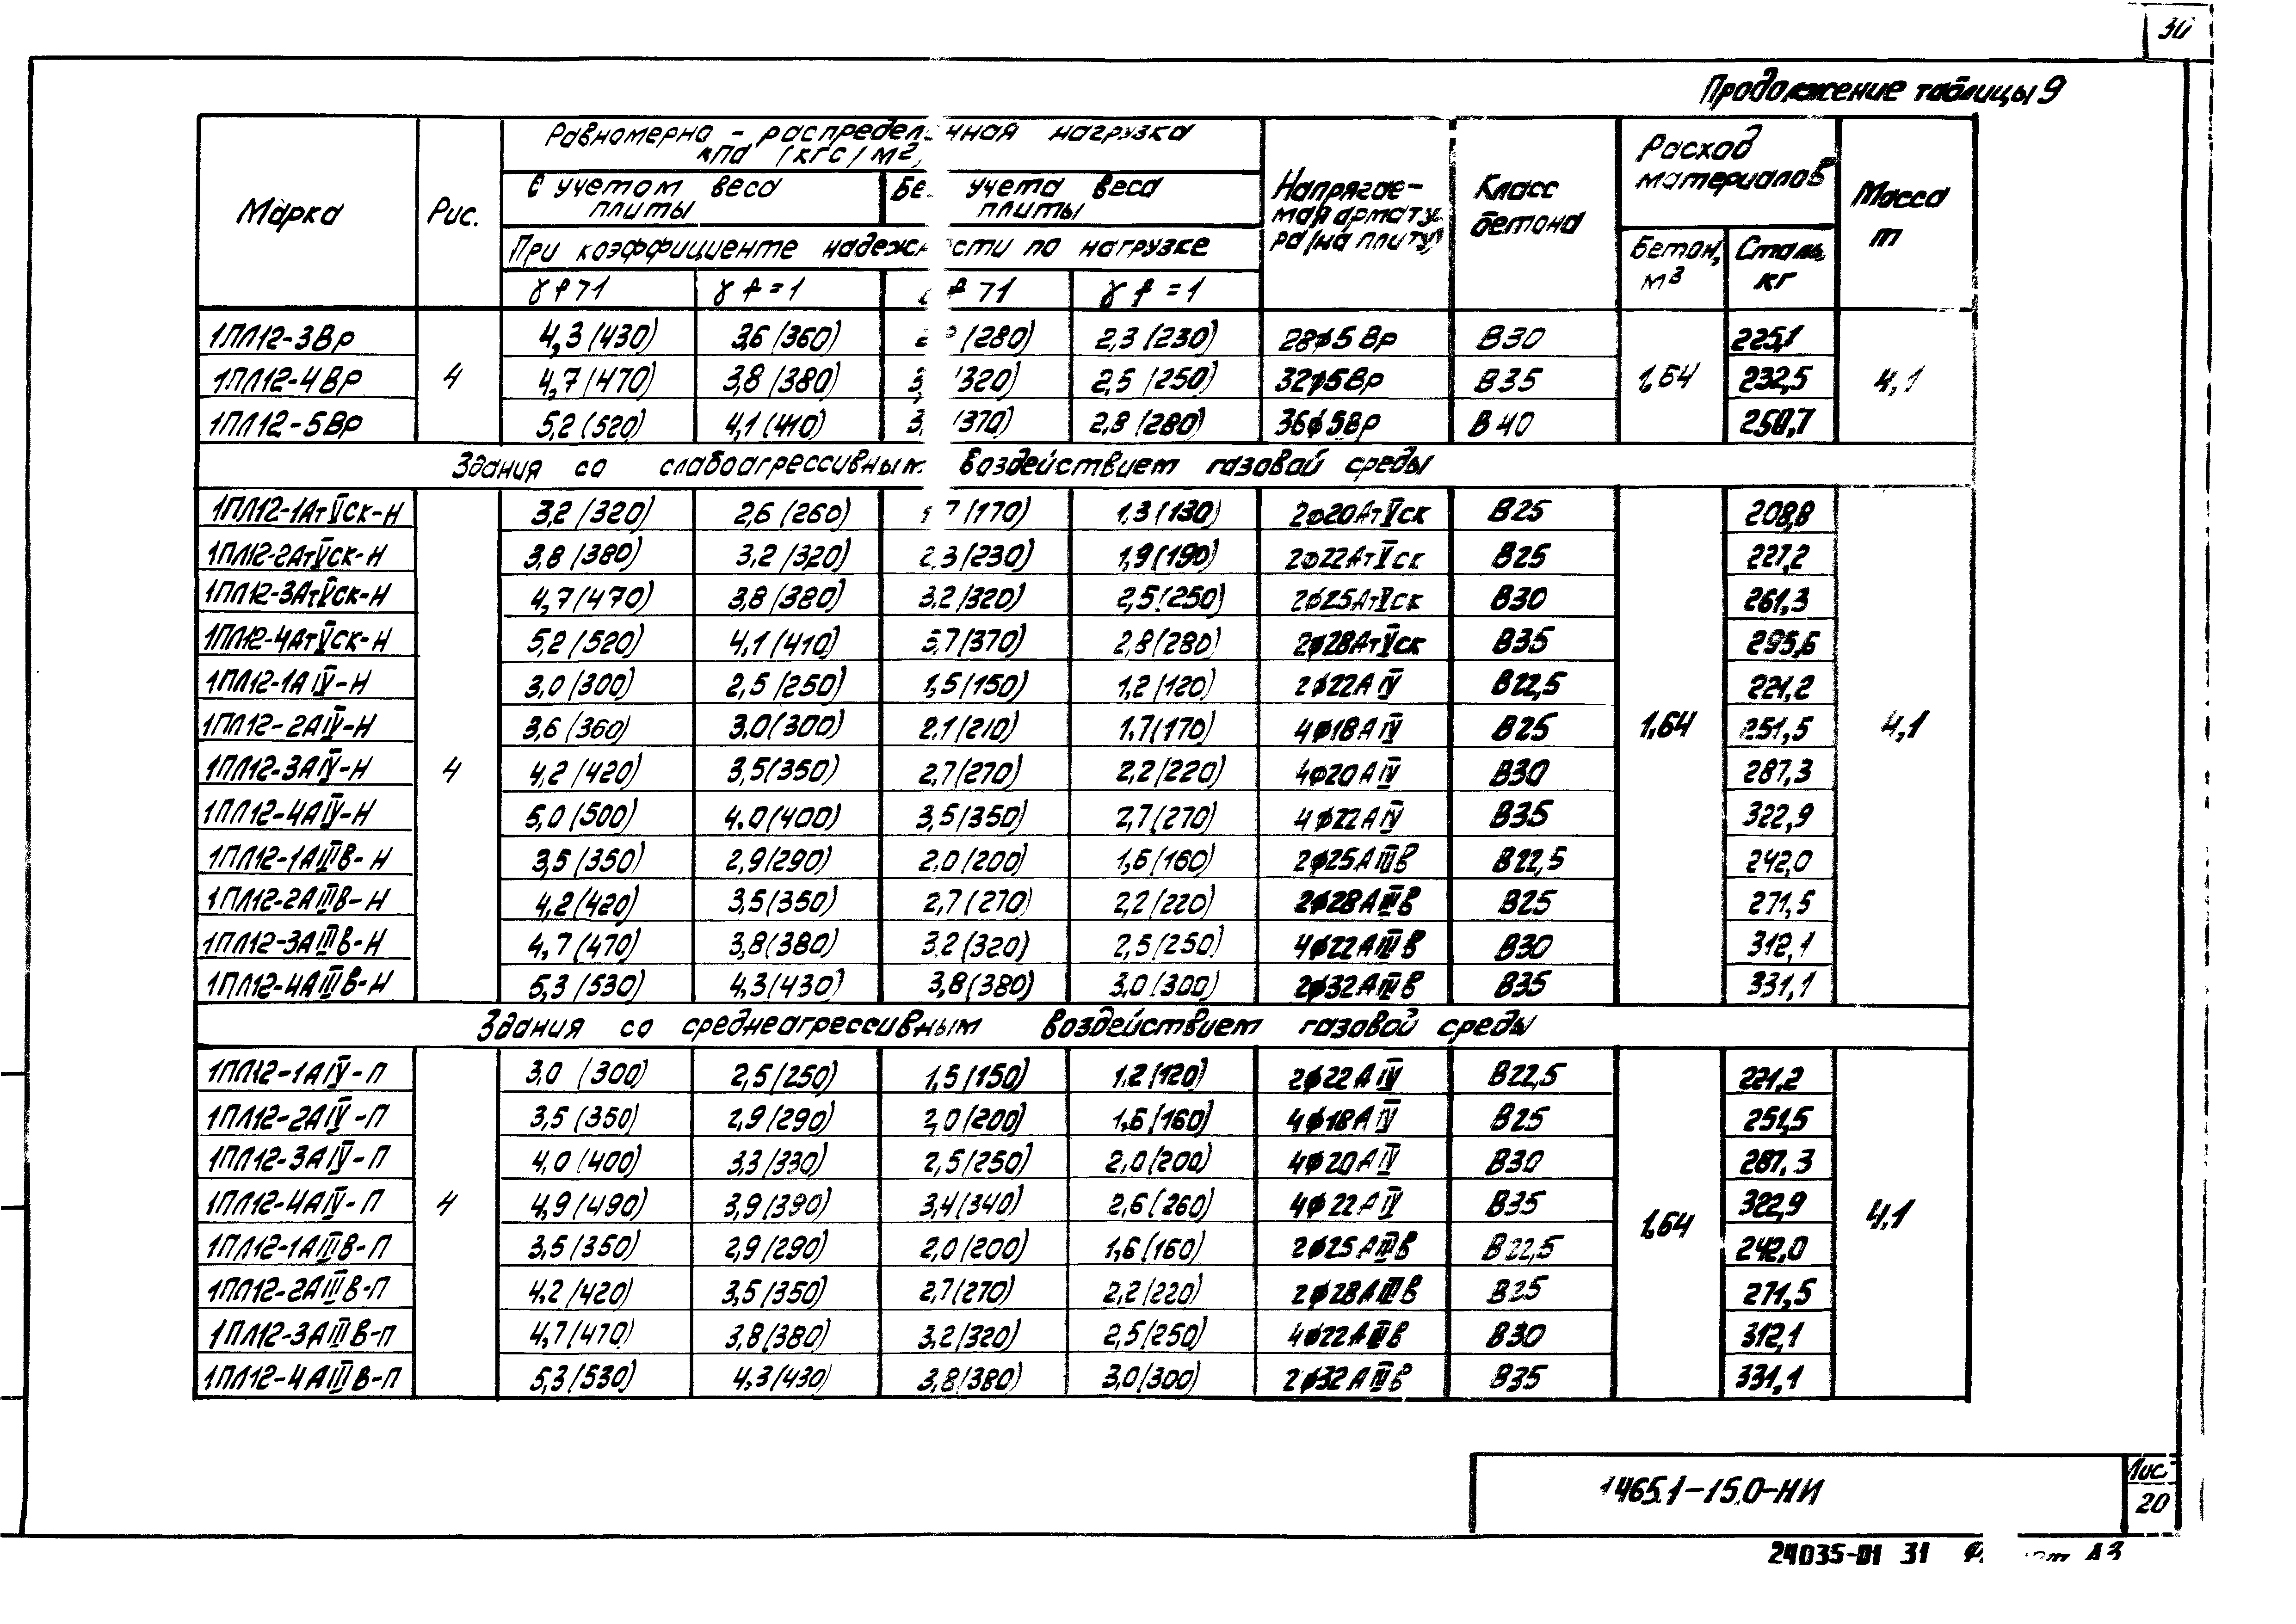 30
Продолжение таблицы 9
Марка
Рис.
Равномерно - распределенная нагрузка
кПа (кгс/м²)
С учетом веса
плиты
Без учета веса
плиты
При коэффициенте надежности по нагрузке
γf>1 γf=1 γf>1 γf=1
Напрягае-
мая армату-
ра (на плиту)
Класс
бетона
Расход
материалов
Бетон, м³
Сталь, кг
Масса
т
1ПЛ12-3Вр 4,3 (430) 3,6 (360) (280) 2,3 (230) 28ø5Вр В30 225,1
1ПЛ12-4Вр 4 4,7 (470) 3,8 (380) 320) 2,5 (250) 32ø5Вр В35 1,64 232,5 4,1
1ПЛ12-5Вр 5,2 (520) 4,1 (410) (370) 2,8 (280) 36ø5Вр В40 250,7
Здания со слабоагрессивным воздействием газовой среды
1ПЛ12-1АтVск-Н 3,2 (320) 2,6 (260) 1,7 (170) 1,3 (130) 2ø20АтVск В25 208,8
1ПЛ12-2АтVск-Н 3,8 (380) 3,2 (320) 2,3 (230) 1,9 (190) 2ø22АтVск В25 227,2
1ПЛ12-3АтVск-Н 4,7 (470) 3,8 (380) 3,2 (320) 2,5 (250) 2ø25АтVск В30 261,3
1ПЛ12-4АтVск-Н 5,2 (520) 4,1 (410) 3,7 (370) 2,8 (280) 2ø28АтVск В35 295,6
1ПЛ12-1АIV-Н 3,0 (300) 2,5 (250) 1,5 (150) 1,2 (120) 2ø22АIV В22,5 221,2
1ПЛ12-2АIV-Н 3,6 (360) 3,0 (300) 2,1 (210) 1,7 (170) 4ø18АIV В25 1,64 251,5 4,1
1ПЛ12-3АIV-Н 4 4,2 (420) 3,5 (350) 2,7 (270) 2,2 (220) 4ø20АIV В30 287,3
1ПЛ12-4АIV-Н 5,0 (500) 4,0 (400) 3,5 (350) 2,7 (270) 4ø22АIV В35 322,9
1ПЛ12-1АIIIв-Н 3,5 (350) 2,9 (290) 2,0 (200) 1,6 (160) 2ø25АIIIв В22,5 242,0
1ПЛ12-2АIIIв-Н 4,2 (420) 3,5 (350) 2,7 (270) 2,2 (220) 2ø28АIIIв В25 271,5
1ПЛ12-3АIIIв-Н 4,7 (470) 3,8 (380) 3,2 (320) 2,5 (250) 4ø22АIIIв В30 312,1
1ПЛ12-4АIIIв-Н 5,3 (530) 4,3 (430) 3,8 (380) 3,0 (300) 2ø32АIIIв В35 331,1
Здания со среднеагрессивным воздействием газовой среды
1ПЛ12-1АIV-П 3,0 (300) 2,5 (250) 1,5 (150) 1,2 (120) 2ø22АIV В22,5 221,2
1ПЛ12-2АIV-П 3,5 (350) 2,9 (290) 2,0 (200) 1,6 (160) 4ø18АIV В25 251,5
1ПЛ12-3АIV-П 4,0 (400) 3,3 (330) 2,5 (250) 2,0 (200) 4ø20АIV В30 287,3
1ПЛ12-4АIV-П 4 4,9 (490) 3,9 (390) 3,4 (340) 2,6 (260) 4ø22АIV В35 1,64 322,9 4,1
1ПЛ12-1АIIIв-П 3,5 (350) 2,9 (290) 2,0 (200) 1,6 (160) 2ø25АIIIв В22,5 242,0
1ПЛ12-2АIIIв-П 4,2 (420) 3,5 (350) 2,7 (270) 2,2 (220) 2ø28АIIIв В25 271,5
1ПЛ12-3АIIIв-п 4,7 (470) 3,8 (380) 3,2 (320) 2,5 (250) 4ø22АIIIв В30 312,1
1ПЛ12-4АIIIв-п 5,3 (530) 4,3 (430) 3,8 (380) 3,0 (300) 2ø32АIIIв В35 331,1
1.465.1-15.0-НИ
Лист
20
24035-01 31 А3